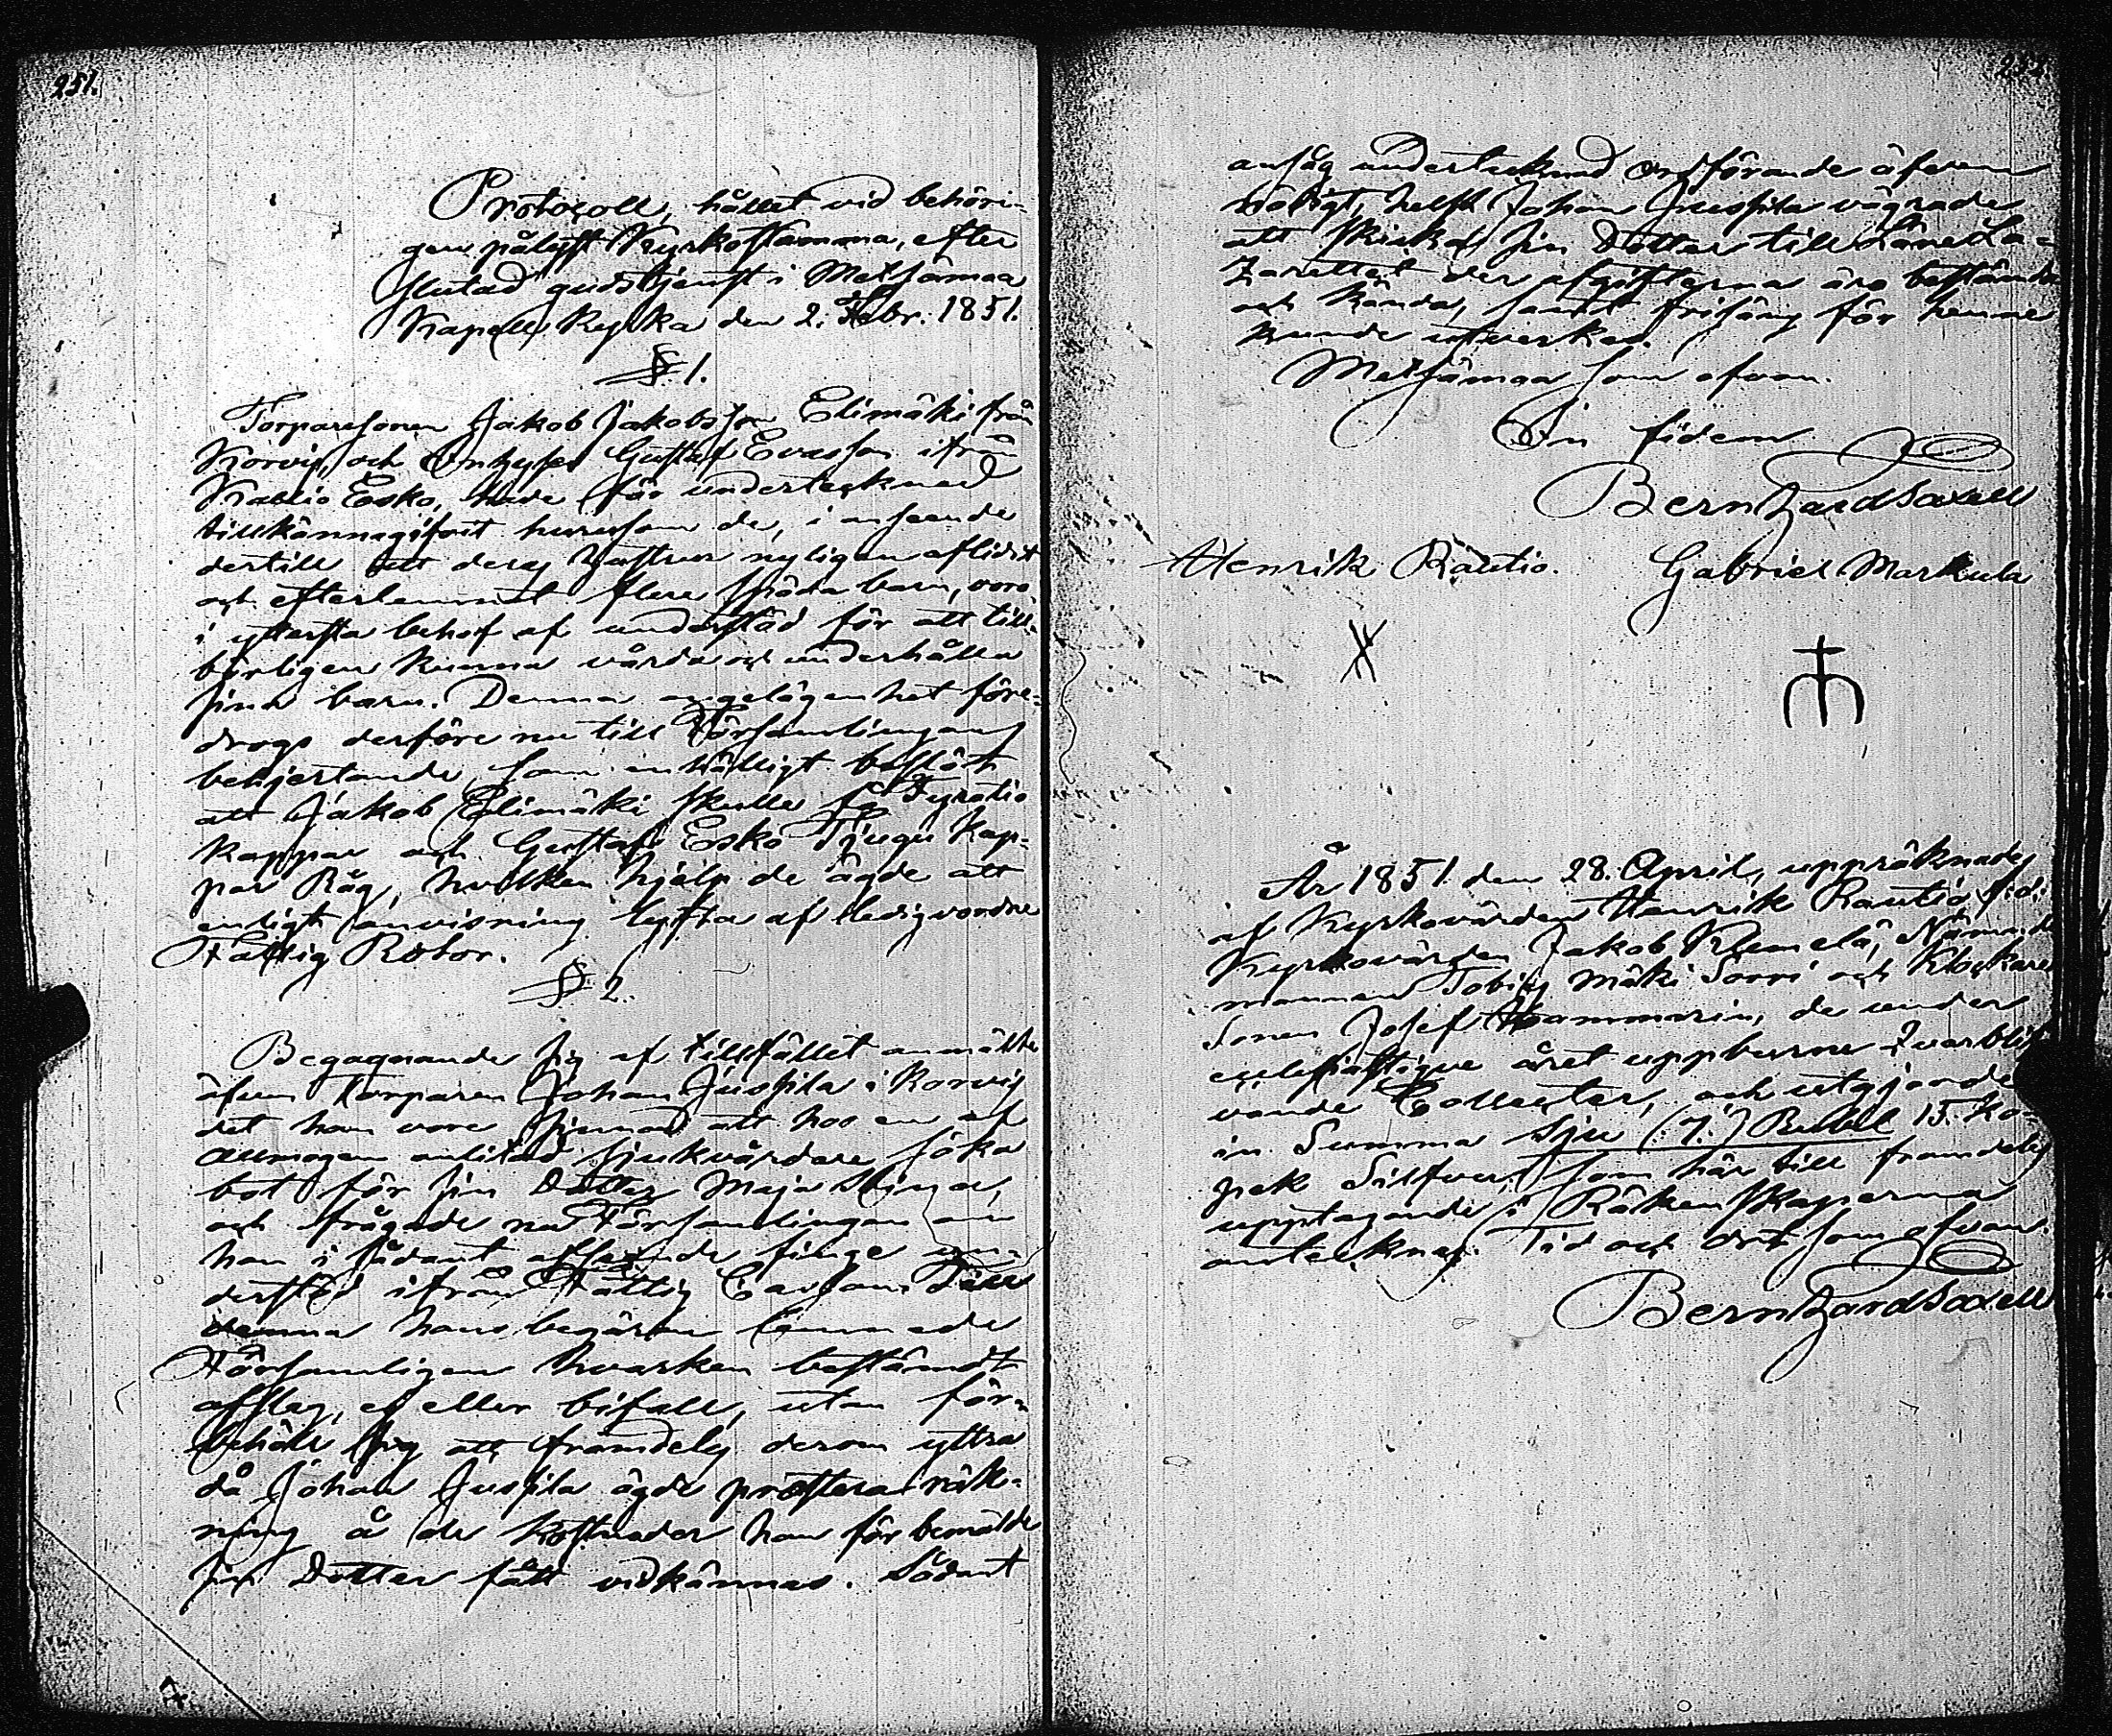 251.
Protocoll, hållet vid behöri-
gen pålyst Kyrkostämma, efter
slutad gudstjenst i Metsämaa
Kapells Kyrka den 2. Febr. 1851.
§. 1.
Torparesonen Jakob Jakobsson Elimäki från
Korvis, och Gustaf Evasson ifrån
Esko, hade för undertecknad
tillkännagifvit huruson de, i anseende
dertill att deras hustrur nyligen aflidit
och efterlemnat flere späda barn, voro
i yttersta behof af understöd för att till-
börligen kunna vårda och underhålla
sina barn. Denna angelägenhet före-
drogs derföre nu till Församlingens
behjertande, som enhälligt beslöt
att Jakob Elimäki skulle få Fyratio
kappar och Gustaf Esko Tjugu Kap-
par Råg, hvilken hjelp de ägde att
enligt anvisning lyfta af ledigvordne
Fattig Rotor.
§ 2.
Begagnande sig af tillfället anmälte
äfven Torparen Johan Jussila i Korvis
det han vore sinnad att hos en af
allmogen anlitad sjukvårdare söka
bot för sin Dotter Maja Stina,
och frågade nu Församlingen om
han i sådant afseende finge un-
derstöd ifrån Fattig Cassan. Till
denna hans begäran lemnade
Församligen hvarken bestämdt
afslag, ej eller bifall, utan för-
behöll sig att framdeles derom yttra
då Johan Jussila ägde prestera räk-
ning å de kostnader han för bemälde
sin Dotter fått vidkännas. Sådant
252
ansåg undertecknad Ordförande äfven
böligt, helst Johan Jussila vägrade
att skicka sin Dotter till Läne La-
zarettet der afgifterna äro bestämda
och kända, samt frisäng för henne
kunde utverkas.
Metsämaa som ofvan.
In fidem
Bernhard Saxell
Henrik Rautio. Gabriel Markula
År 1851. den 28. April, uppräknades
af Kyrkovärden Henrik Rautio
Kyrkovärden Jakob Klemelä, Nämnde
mannen Tobias Mäki Sorri och Klockare
Sonen Josef Hammarin, de under
ecclesiastique året uppburne qvarblif
vande Collecter, och utgjorde
in Summa Sju (:7.:) Rubel 15. Ko-
pek Silfver, som här till framdeles
upptagande i Räkenskaperna
antecknas. Tid och ort som ofvan.
Bernhard Saxell